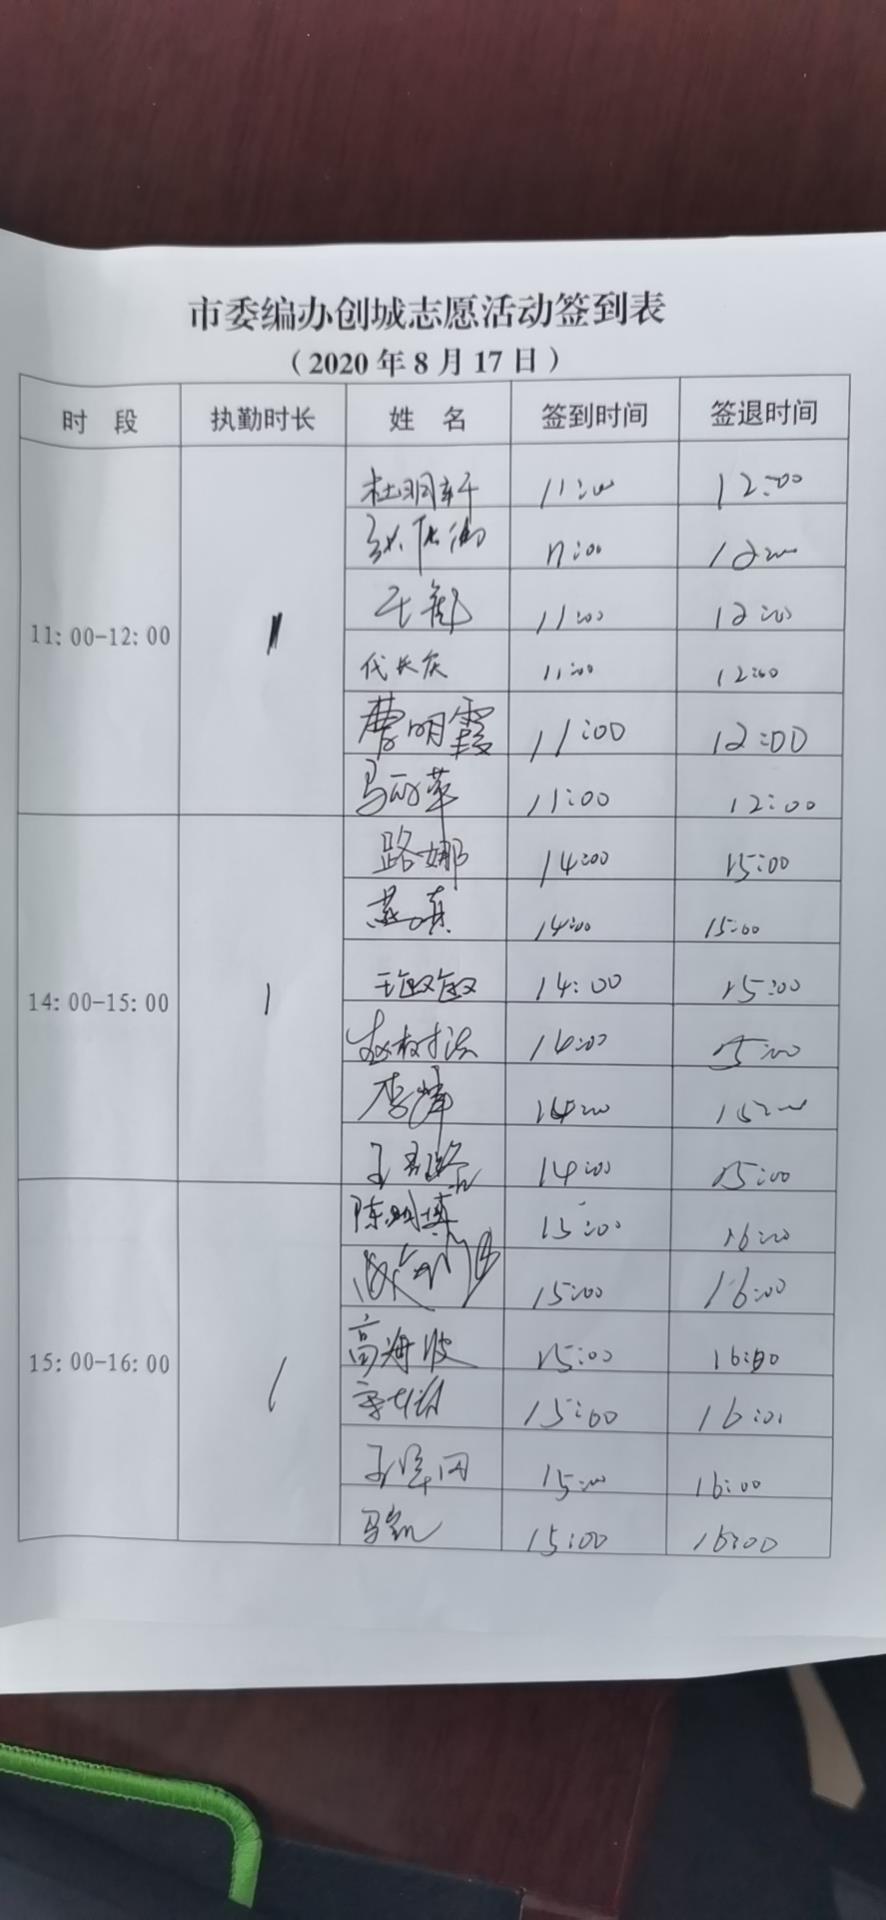 市委编办创城志愿活动签到表
（2020 年 8 月 17 日）
时 段 执勤时长 姓 名 签到时间 签退时间
杜明轩 11:00 12:00
11:00 12:00
11:00 12:00
11:00-12:00 1
代长庆 11:00 12:00
曹明霞 11:00 12:00
马丽苹 11:00 12:00
路娜 14:00 15:00
14:00 15:00
王敏敏 14:00 15:00
14:00-15:00 1
赵树法 14:00 15:00
李烨 14:00 15:00
14:00 15:00
15:00 16:00
15:00 16:00
高海波 15:00 16:00
15:00-16:00 1
15:00 16:00
15:00 16:00
马凯 15:00 16:00